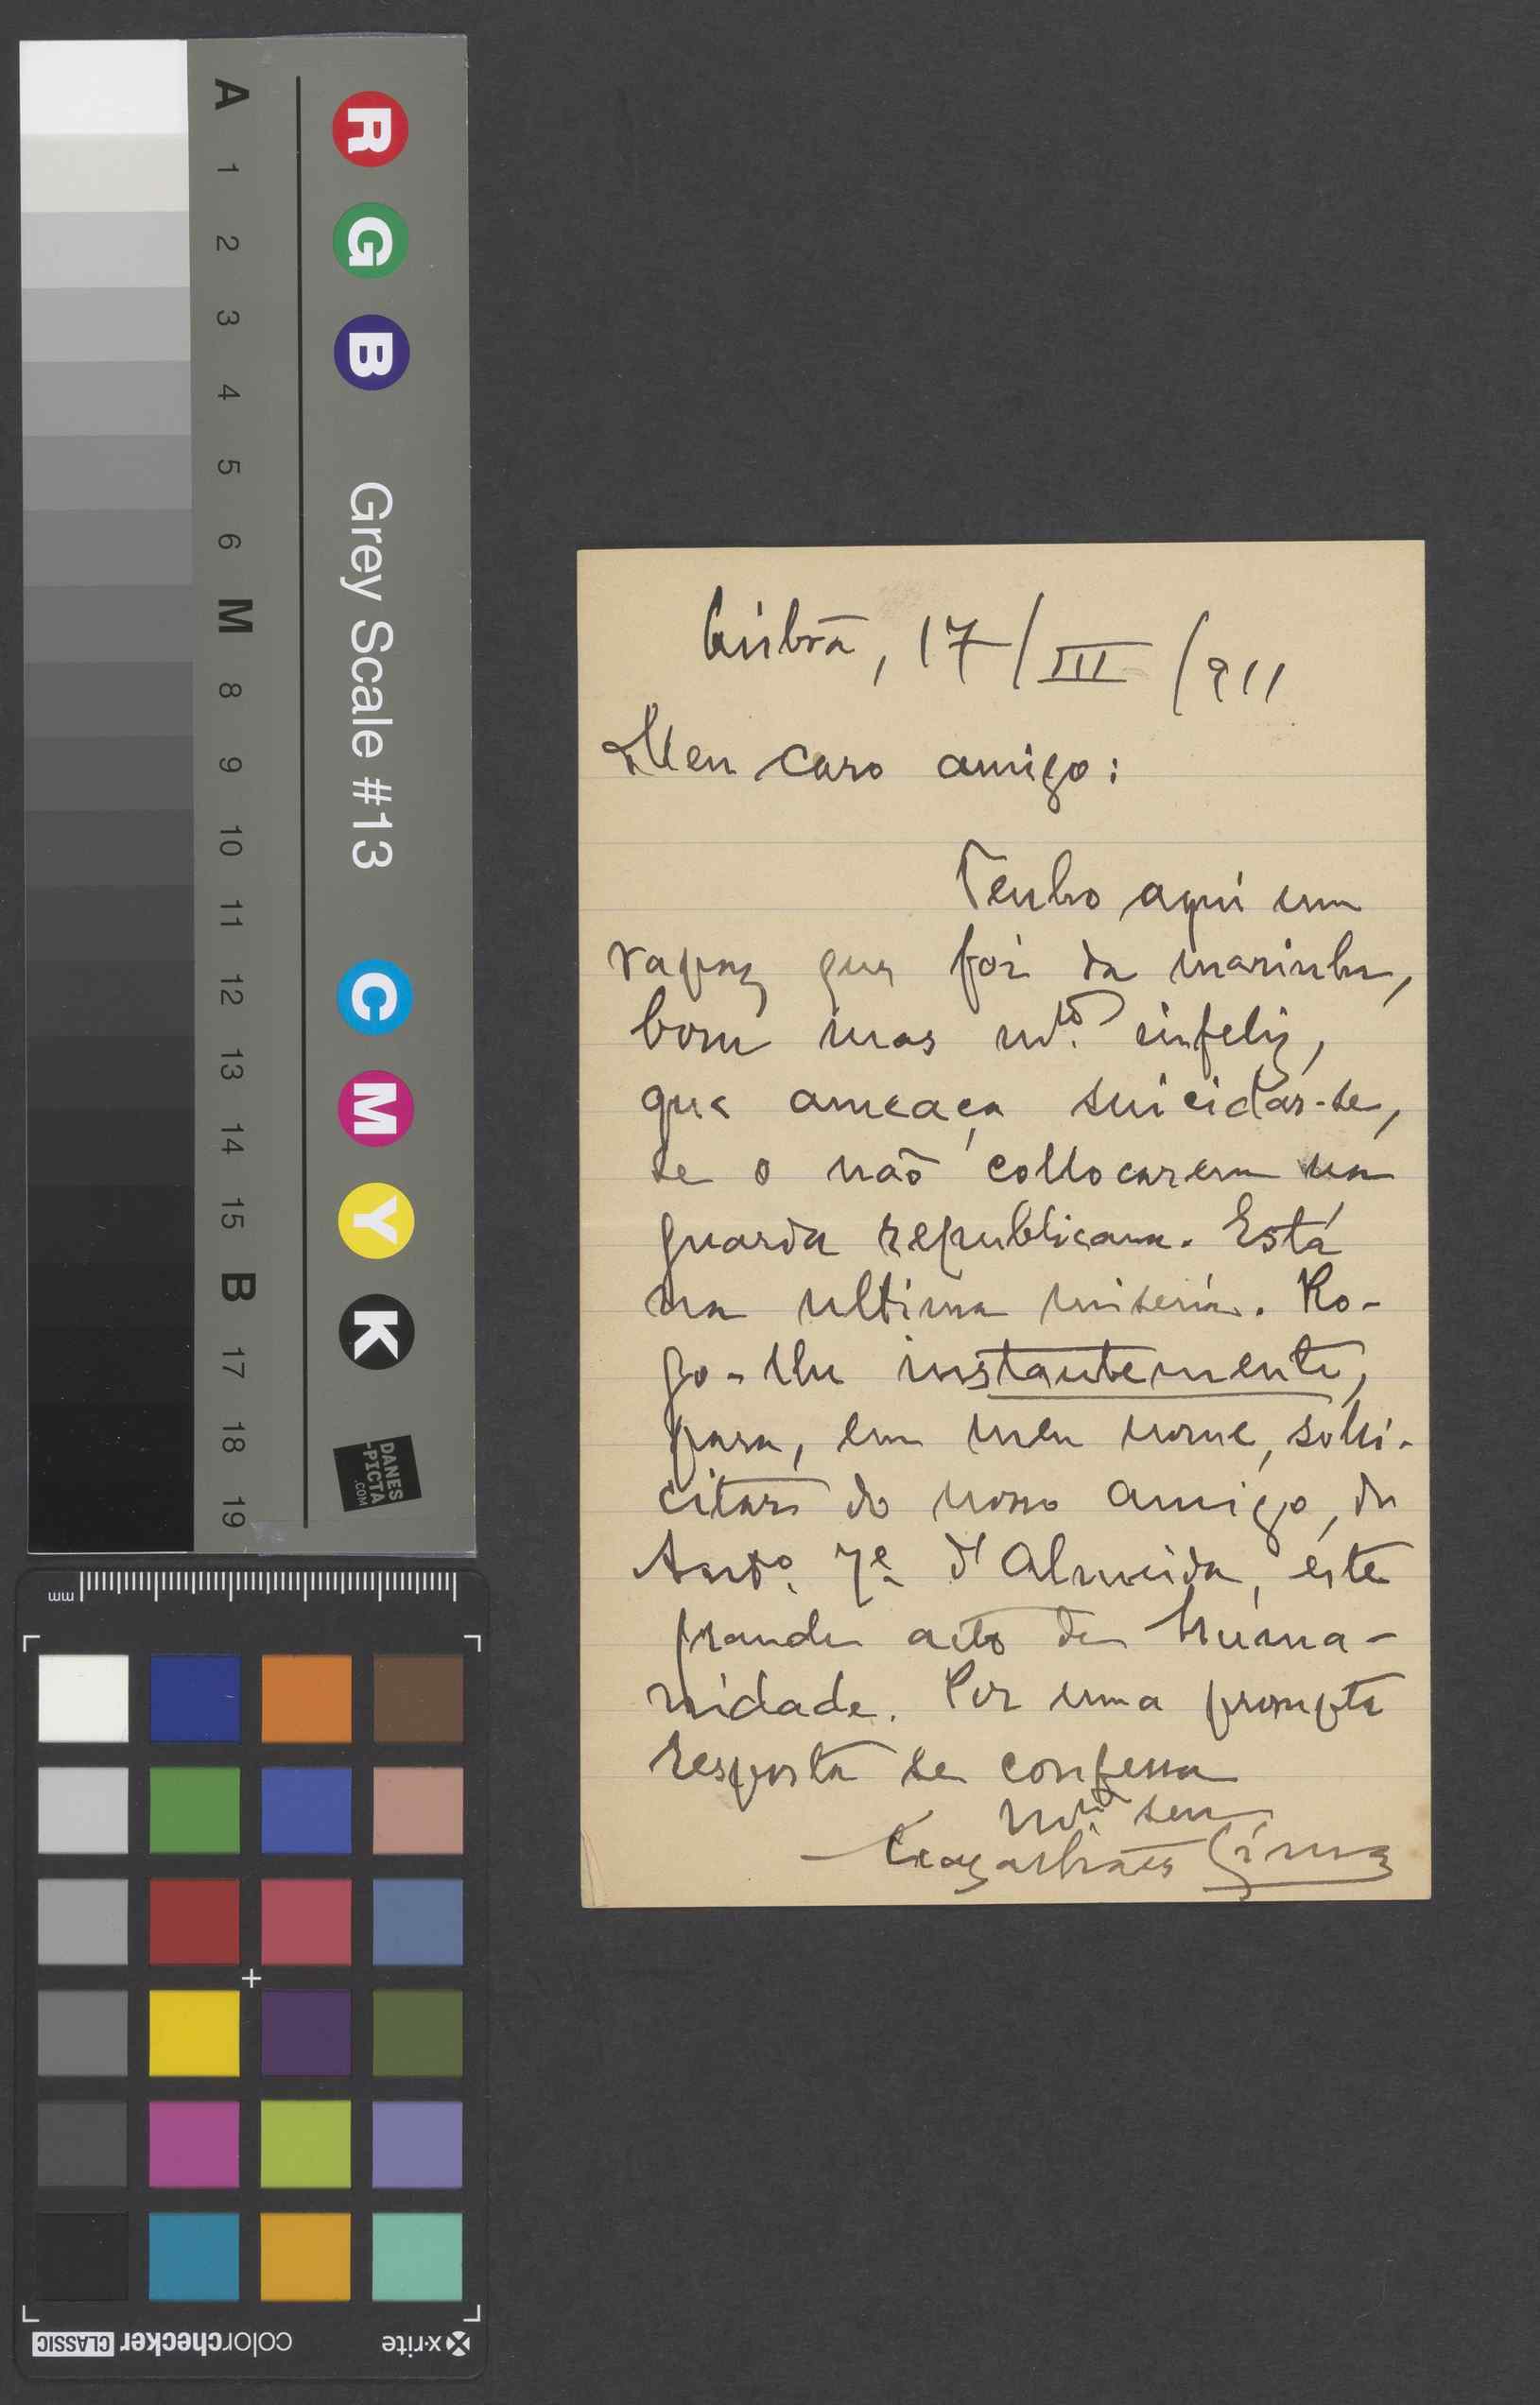 A
1
2
3
4
5
6
M
8
9
10
11
12
13
14
15
B
17
18
19
R
G
B
Grey Scale #13
C
M
Y
K
DANES
-PICTA
.COM
mm
x-rite
colorchecker CLASSIC
17/III/911
Meu caro amigo:
Tenho aqui um
rapaz que foi da marinha,
bom mas mto. infeliz,
que ameaça suicidar-se,
se o não collocarem na
guarda republicana. Está
na ultima miseria. Ro-
go-lhe instantemente,
para, em meu nome, solli-
citar do nosso amigo, dr
Anto. Jé d'Almeida, este
grande acto de huma-
nidade. Por uma prompta
resposta se confessa
mto. seu
Magalhães Lima